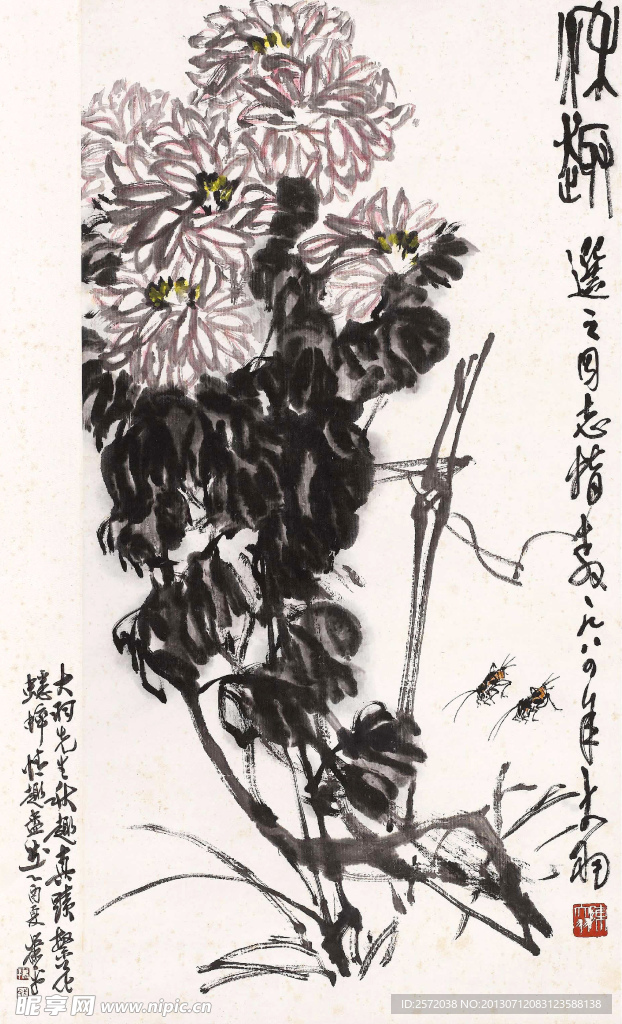 秋趣
選之同志指教一九八四年大羽
大羽先生秋趣真蹟繁花
蟋蟀情趣盎然乙酉夏
昵享网 www.nipic.cn
ID:2572038 NO:20130712083123588138